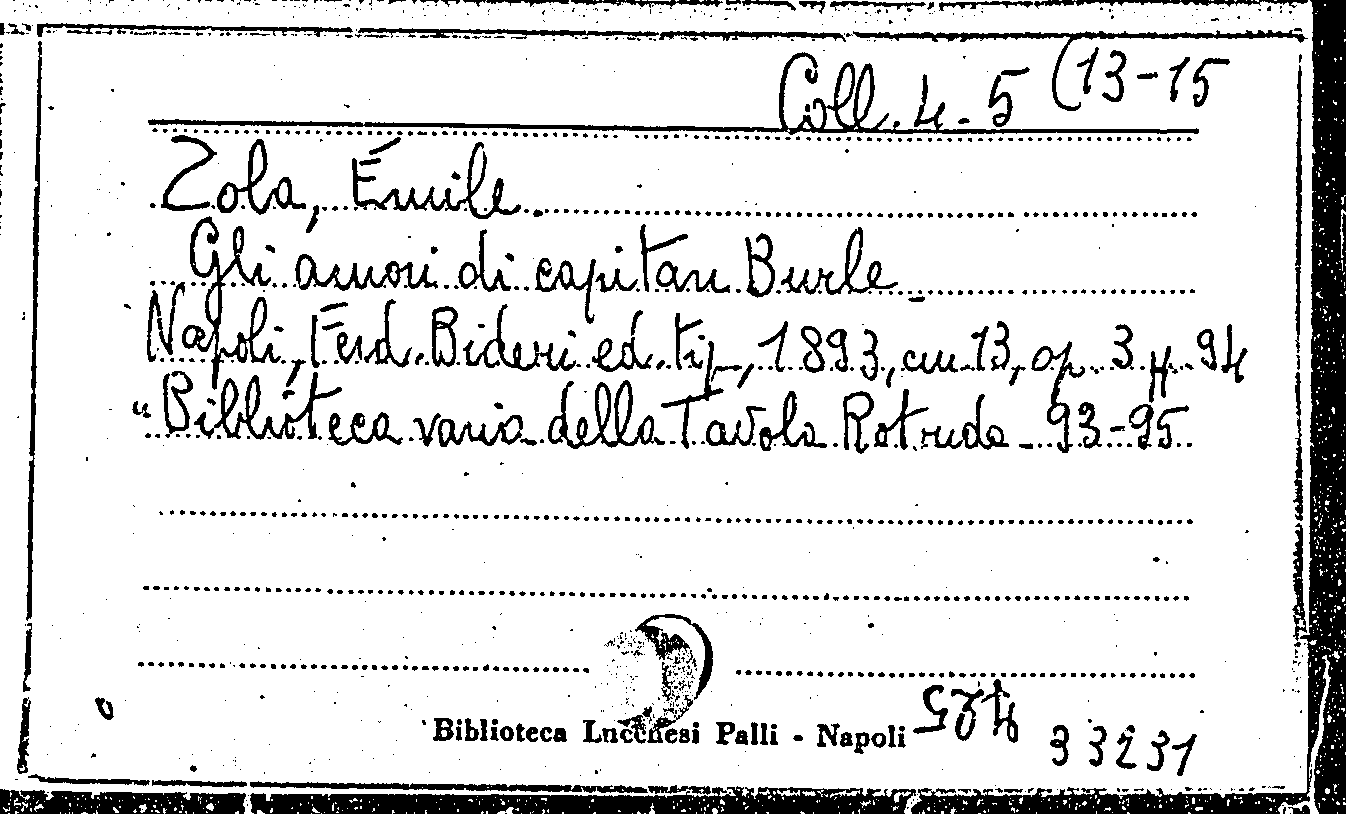 Coll. 4. 5 (13-15
Zola, Émile.
Gli amori di capitan Burle -
Napoli, Ferd. Bideri ed. tip., 1893, cm 13, op. 3 pp. 94
"Biblioteca varia della Tavola Rotonda - 93-95
Biblioteca Lucchesi Palli - Napoli
425
33231